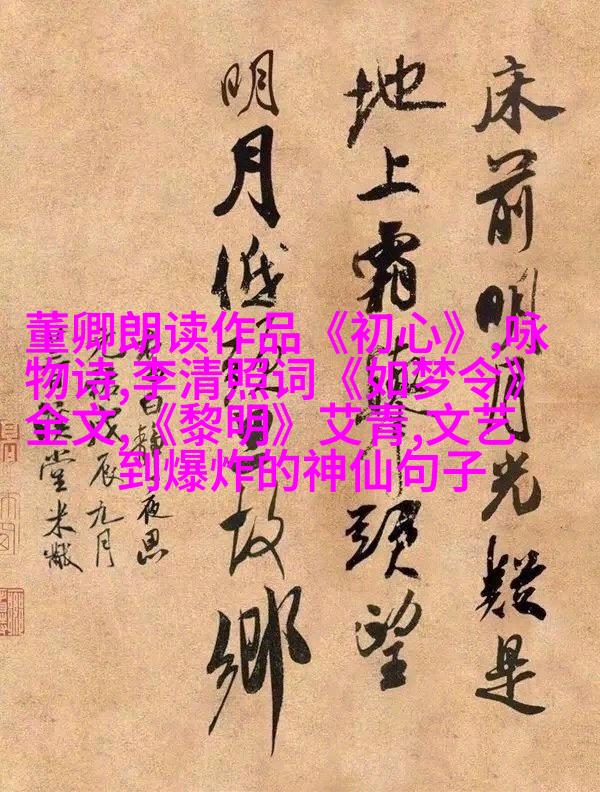 董卿朗读作品《初心》,咏
物诗,李清照词《如梦令》
全文,《黎明》艾青,文艺
到爆炸的神仙句子
床前明月光疑是
地上霜舉頭望
明月低頭思故鄉
白靜夜思
戊辰九月
堂米黻